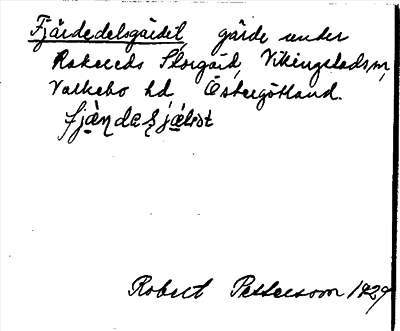 Fjärdedelsgärdet, gärde under
Rakereds Storgård, Vikingstads sn,
Valkebo hd Östergötland.
Robert Pettersson 1929